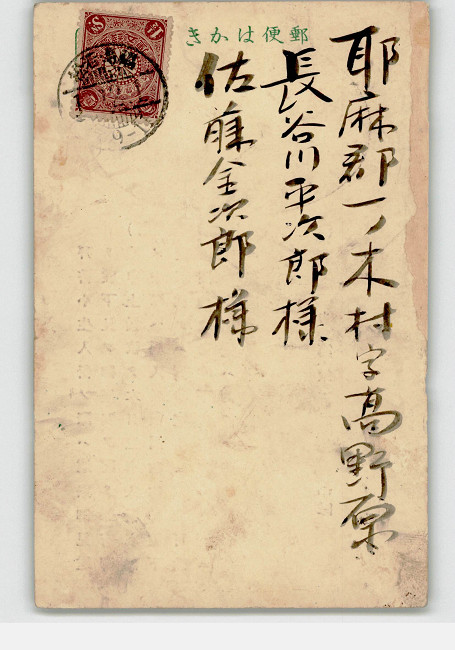 きかは便郵
耶麻郡一ノ木村字高野原
長谷川平次郎様
佐藤金次郎様